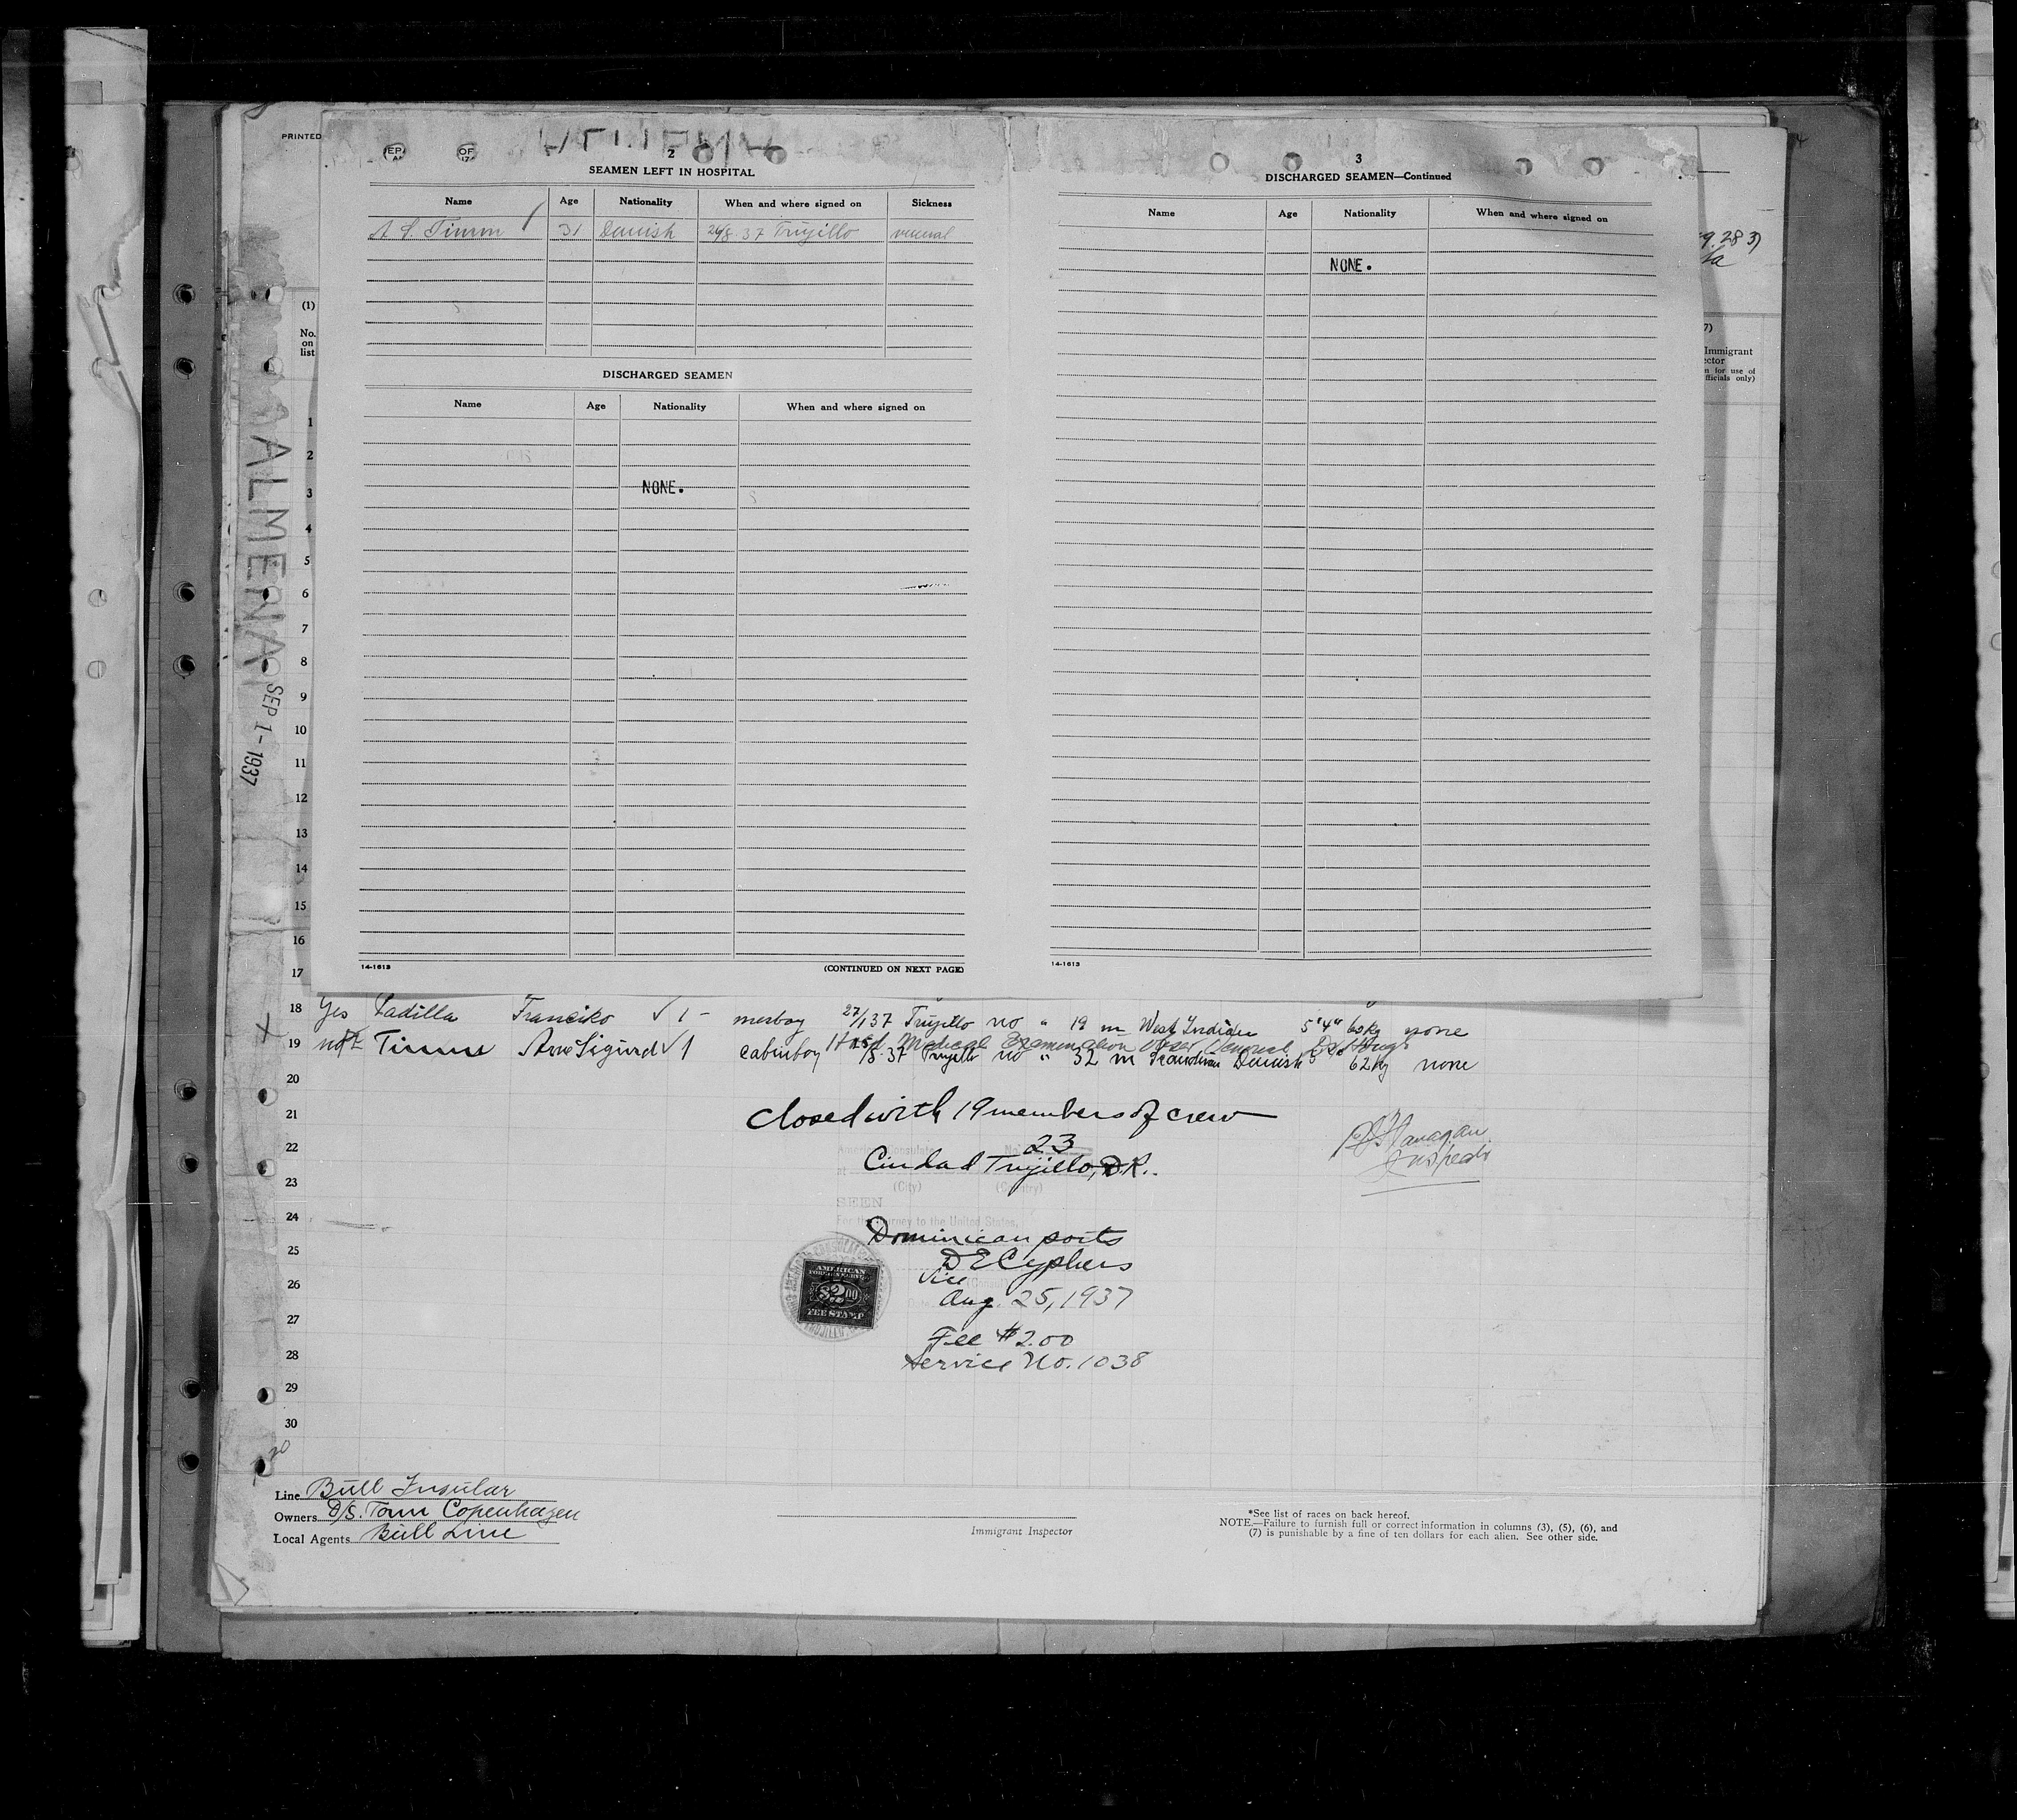 PRINTED
2
SEAMEN LEFT IN HOSPITAL
Name Age Nationality When and where signed on Sickness
A S. Timm 31 Danish 24/8-37 Trujillo veneral
DISCHARGED SEAMEN
Name Age Nationality When and where signed on
NONE.
14-1613 (CONTINUED ON NEXT PAGE)
3
DISCHARGED SEAMEN—Continued
Name Age Nationality When and where signed on
NONE.
14-1613
(1)
No. on list
ALMENA
SEP 1 - 1937
1
2
3
4
5
6
7
8
9
10
11
12
13
14
15
16
17
18 Yes Padilla Franciko √ 1 - mesboy 27/1 37 Trujillo no " 19 m West Indian 5'4" 60 kg none
Held Medical Examination
19 not Timm Arne Sigurd √ 1 cabinboy /8 37 Trujillo no " 32 m Scandinavian Danish 62 kg none
20
21 Closed with 19 members of crew
22 23
Ciudad Trujillo, D.R.
23 (City) (Country)
SEEN
24 For the journey to the United States,
Dominican ports
25 D E Cyphers
Vice
26 Aug. 25, 1937
27 Fee $2.00
28 Service No. 1038
29
30
AMERICAN
FOREIGN SERVICE
$2.00
FEE STAMP
Flanagan
Inspector
Line Bull Insular
Owners D/S. Torm Copenhagen
Local Agents Bull Line
Immigrant Inspector
*See list of races on back hereof.
NOTE.—Failure to furnish full or correct information in columns (3), (5), (6), and
(7) is punishable by a fine of ten dollars for each alien. See other side.